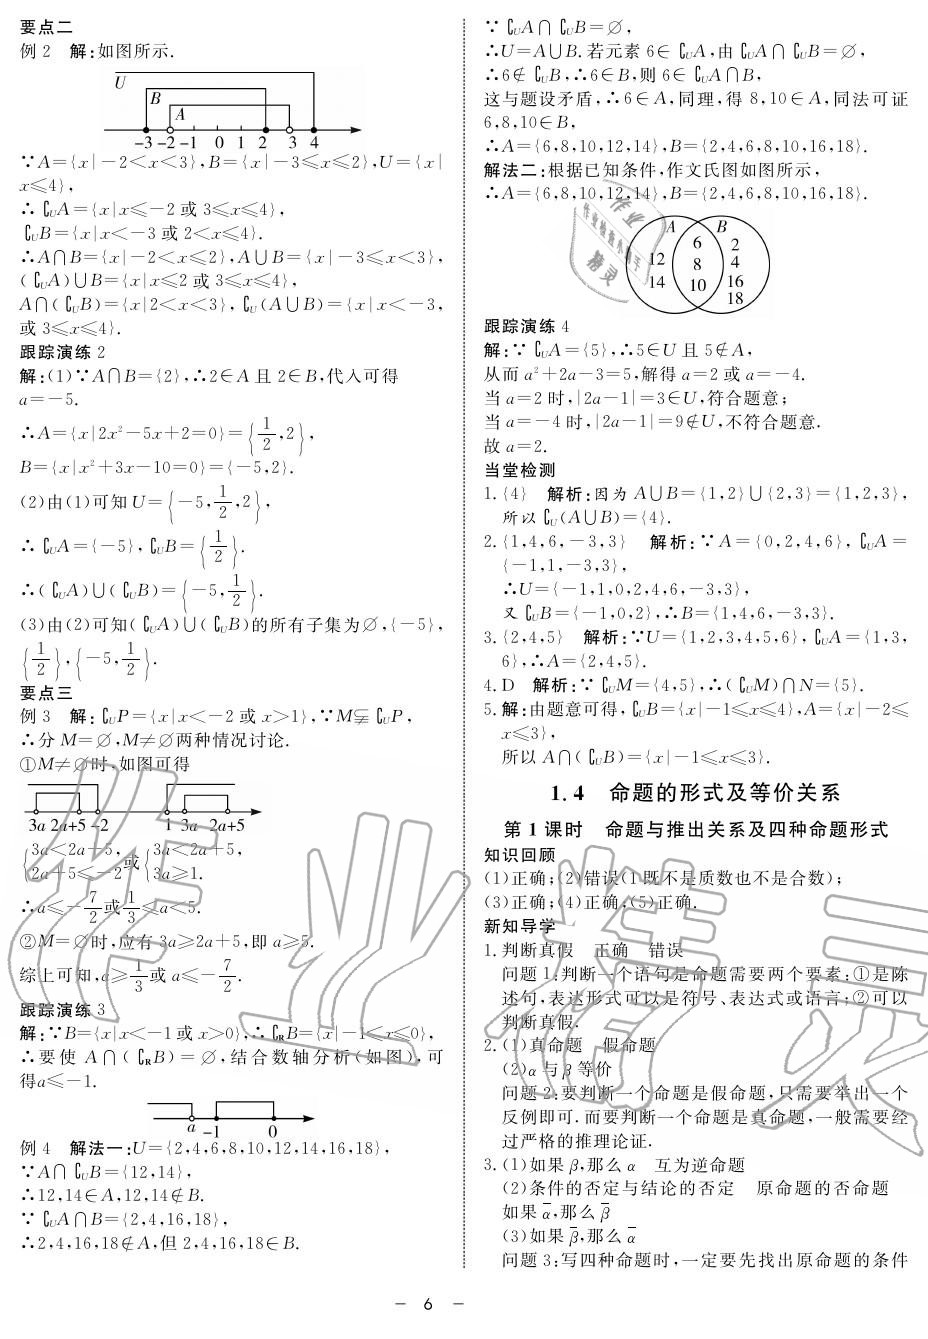 要点二
例 2　解:如图所示.
U
B
A
-3 -2 -1 0 1 2 3 4
∵A={x|-2<x<3},B={x|-3≤x≤2},U={x|
x≤4},
∴ ∁UA={x|x≤-2 或 3≤x≤4},
∁UB={x|x<-3 或 2<x≤4}.
∴A∩B={x|-2<x≤2},A∪B={x|-3≤x<3},
(∁UA)∪B={x|x≤2 或 3≤x≤4},
A∩(∁UB)={x|2<x<3},∁U(A∪B)={x|x<-3,
或 3≤x≤4}.
跟踪演练 2
解:(1)∵A∩B={2},∴2∈A 且 2∈B,代入可得
a=-5.
∴A={x|2x²-5x+2=0}={1/2,2},
B={x|x²+3x-10=0}={-5,2}.
(2)由(1)可知 U={-5,1/2,2},
∴ ∁UA={-5},∁UB={1/2}.
∴(∁UA)∪(∁UB)={-5,1/2}.
(3)由(2)可知(∁UA)∪(∁UB)的所有子集为∅,{-5},
{1/2},{-5,1/2}.
要点三
例 3　解:∁UP={x|x<-2 或 x>1},∵M⫋∁UP,
∴分 M=∅,M≠∅两种情况讨论.
①M≠∅时,如图可得
3a 2a+5 -2 1 3a 2a+5
{3a<2a+5, 2a+5≤-2 或 {3a<2a+5, 3a≥1.
∴a≤-7/2 或 1/3≤a<5.
②M=∅时,应有 3a≥2a+5,即 a≥5.
综上可知,a≥1/3 或 a≤-7/2.
跟踪演练 3
解:∵B={x|x<-1 或 x>0},∴∁RB={x|-1≤x≤0},
∴要使 A∩(∁RB)=∅,结合数轴分析(如图),可
得a≤-1.
a -1 0
例 4　解法一:U={2,4,6,8,10,12,14,16,18},
∵A∩∁UB={12,14},
∴12,14∈A,12,14∉B.
∵ ∁UA∩B={2,4,16,18},
∴2,4,16,18∉A,但 2,4,16,18∈B.
∵ ∁UA∩∁UB=∅,
∴U=A∪B.若元素 6∈∁UA,由∁UA∩∁UB=∅,
∴6∉∁UB,∴6∈B,则 6∈∁UA∩B,
这与题设矛盾,∴6∈A,同理,得 8,10∈A,同法可证
6,8,10∈B,
∴A={6,8,10,12,14},B={2,4,6,8,10,16,18}.
解法二:根据已知条件,作文氏图如图所示,
∴A={6,8,10,12,14},B={2,4,6,8,10,16,18}.
A B
6 2
12 8 4
14 10 16
18
跟踪演练 4
解:∵ ∁UA={5},∴5∈U 且 5∉A,
从而 a²+2a-3=5,解得 a=2 或 a=-4.
当 a=2 时,|2a-1|=3∈U,符合题意;
当 a=-4 时,|2a-1|=9∉U,不符合题意.
故 a=2.
当堂检测
1.{4}　解析:因为 A∪B={1,2}∪{2,3}={1,2,3},
所以∁U(A∪B)={4}.
2.{1,4,6,-3,3}　解析:∵A={0,2,4,6},∁UA=
{-1,1,-3,3},
∴U={-1,1,0,2,4,6,-3,3},
又∁UB={-1,0,2},∴B={1,4,6,-3,3}.
3.{2,4,5}　解析:∵U={1,2,3,4,5,6},∁UA={1,3,
6},∴A={2,4,5}.
4.D　解析:∵ ∁UM={4,5},∴(∁UM)∩N={5}.
5.解:由题意可得,∁UB={x|-1≤x≤4},A={x|-2≤
x≤3},
所以 A∩(∁UB)={x|-1≤x≤3}.
1.4　命题的形式及等价关系
第 1 课时　命题与推出关系及四种命题形式
知识回顾
(1)正确;(2)错误(1 既不是质数也不是合数);
(3)正确;(4)正确;(5)正确.
新知导学
1.判断真假　正确　错误
问题 1:判断一个语句是命题需要两个要素:①是陈
述句,表达形式可以是符号、表达式或语言;②可以
判断真假.
2.(1)真命题　假命题
(2)α 与 β 等价
问题 2:要判断一个命题是假命题,只需要举出一个
反例即可.而要判断一个命题是真命题,一般需要经
过严格的推理论证.
3.(1)如果 β,那么 α　互为逆命题
(2)条件的否定与结论的否定　原命题的否命题
如果 α̅,那么 β̅
(3)如果 β̅,那么 α̅
问题 3:写四种命题时,一定要先找出原命题的条件
— 6 —
作业精灵